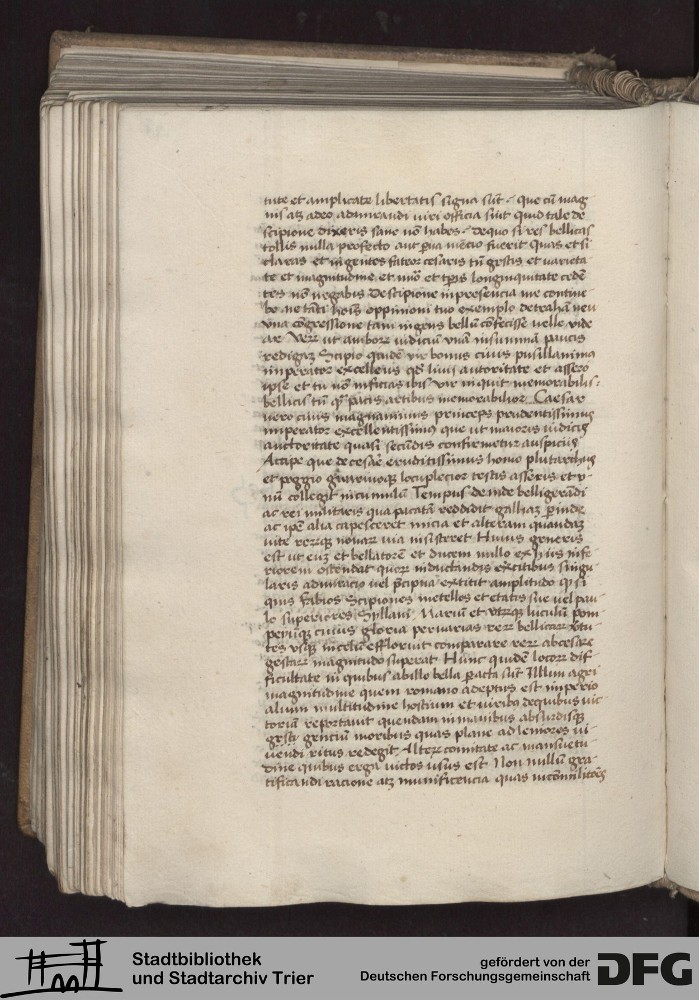 tute et amplicate libertatis signa sūt · que cū mag
nis atq adeo admirandi viri officia sint quid tale de
scipione dixeris sane nō habes · de quo si res bellicas
tollis nulla profecto aut pua mēcio fuerit quas et si
claras et ingentes fateor cesaris tn̄ gestis et varieta
te et magnitudine et imō et tp̄is longinquitate cedē
tes nō negabis De scipione in presencia me contine
bo ne tāti hoīs oppinioni tuo exemplo detrahā neu
vna cōgressione tam ingens bellū cōfecisse uelle vide
ar Verū ut amborū iudiciū vnā in summā paucis
redigaȝ Scipio quidē vir bonus ciuis pusillanimus
imperator excellens qd̄ liuii autoritate et assero
ipse et tu nō inficias ibis vir inquit memorabilis :
bellicis tn̄ qȝ pacis artibus memorabilior Caesar
vero ciuis magnanimus princeps prudentissimus
imperator excellentissimus que ut maioris iudicii
auctoritate quasi secūdis confirmetur auspiciis
Accipe que de cesaē eruditissimus homo plutarchus
et poggio locuplecior testis asseris et v
nū collegit in cumulū Tempus deinde belligerādi
ac rei militaris qua pacatā reddidit galliaȝ perinde
ac ipē alia capesceret inicia et alteram quandaȝ
vite rerūqȝ nouarū uia insisteret Huius generis
est ut euȝ et bellatorē et ducem nullo ex hiis infe
riorem ostendat quorū in ductandis excitibus singu
laris admiracio uel p̄cipua extitit amplitudo Qͥ si
quis Fabios Scipiones metellos et etatis sue uel pau
lo superiores Syllam Mariū et vtrūqȝ lucullū pom
peiūqȝ cuius gloria per uarias rerū bellicarū v̄tu
tes vsqȝ in celū effloruit comparare rerū ab cesare
gestarū magnitudo superat Hunc quidē locorū dif
ficultate in quibus ab illo bella p̄acta sūt Illum agri
magnitudine quem romano adeptus est imperio
alium multitudine hostium et uiribȝ de quibus vic
toriā reportauit quendam in manibus absurdisqȝ
gestis gencium moribus quas plane ad lemores vi
uendi ritus redegit Alterȝ comitate ac mansuetu
dine quibus erga victos usus est Non nullū gra
tificandi racione atqȝ munificencia quas in cōmilitōēs
Stadtbibliothek
und Stadtarchiv Trier
gefördert von der
Deutschen Forschungsgemeinschaft
DFG